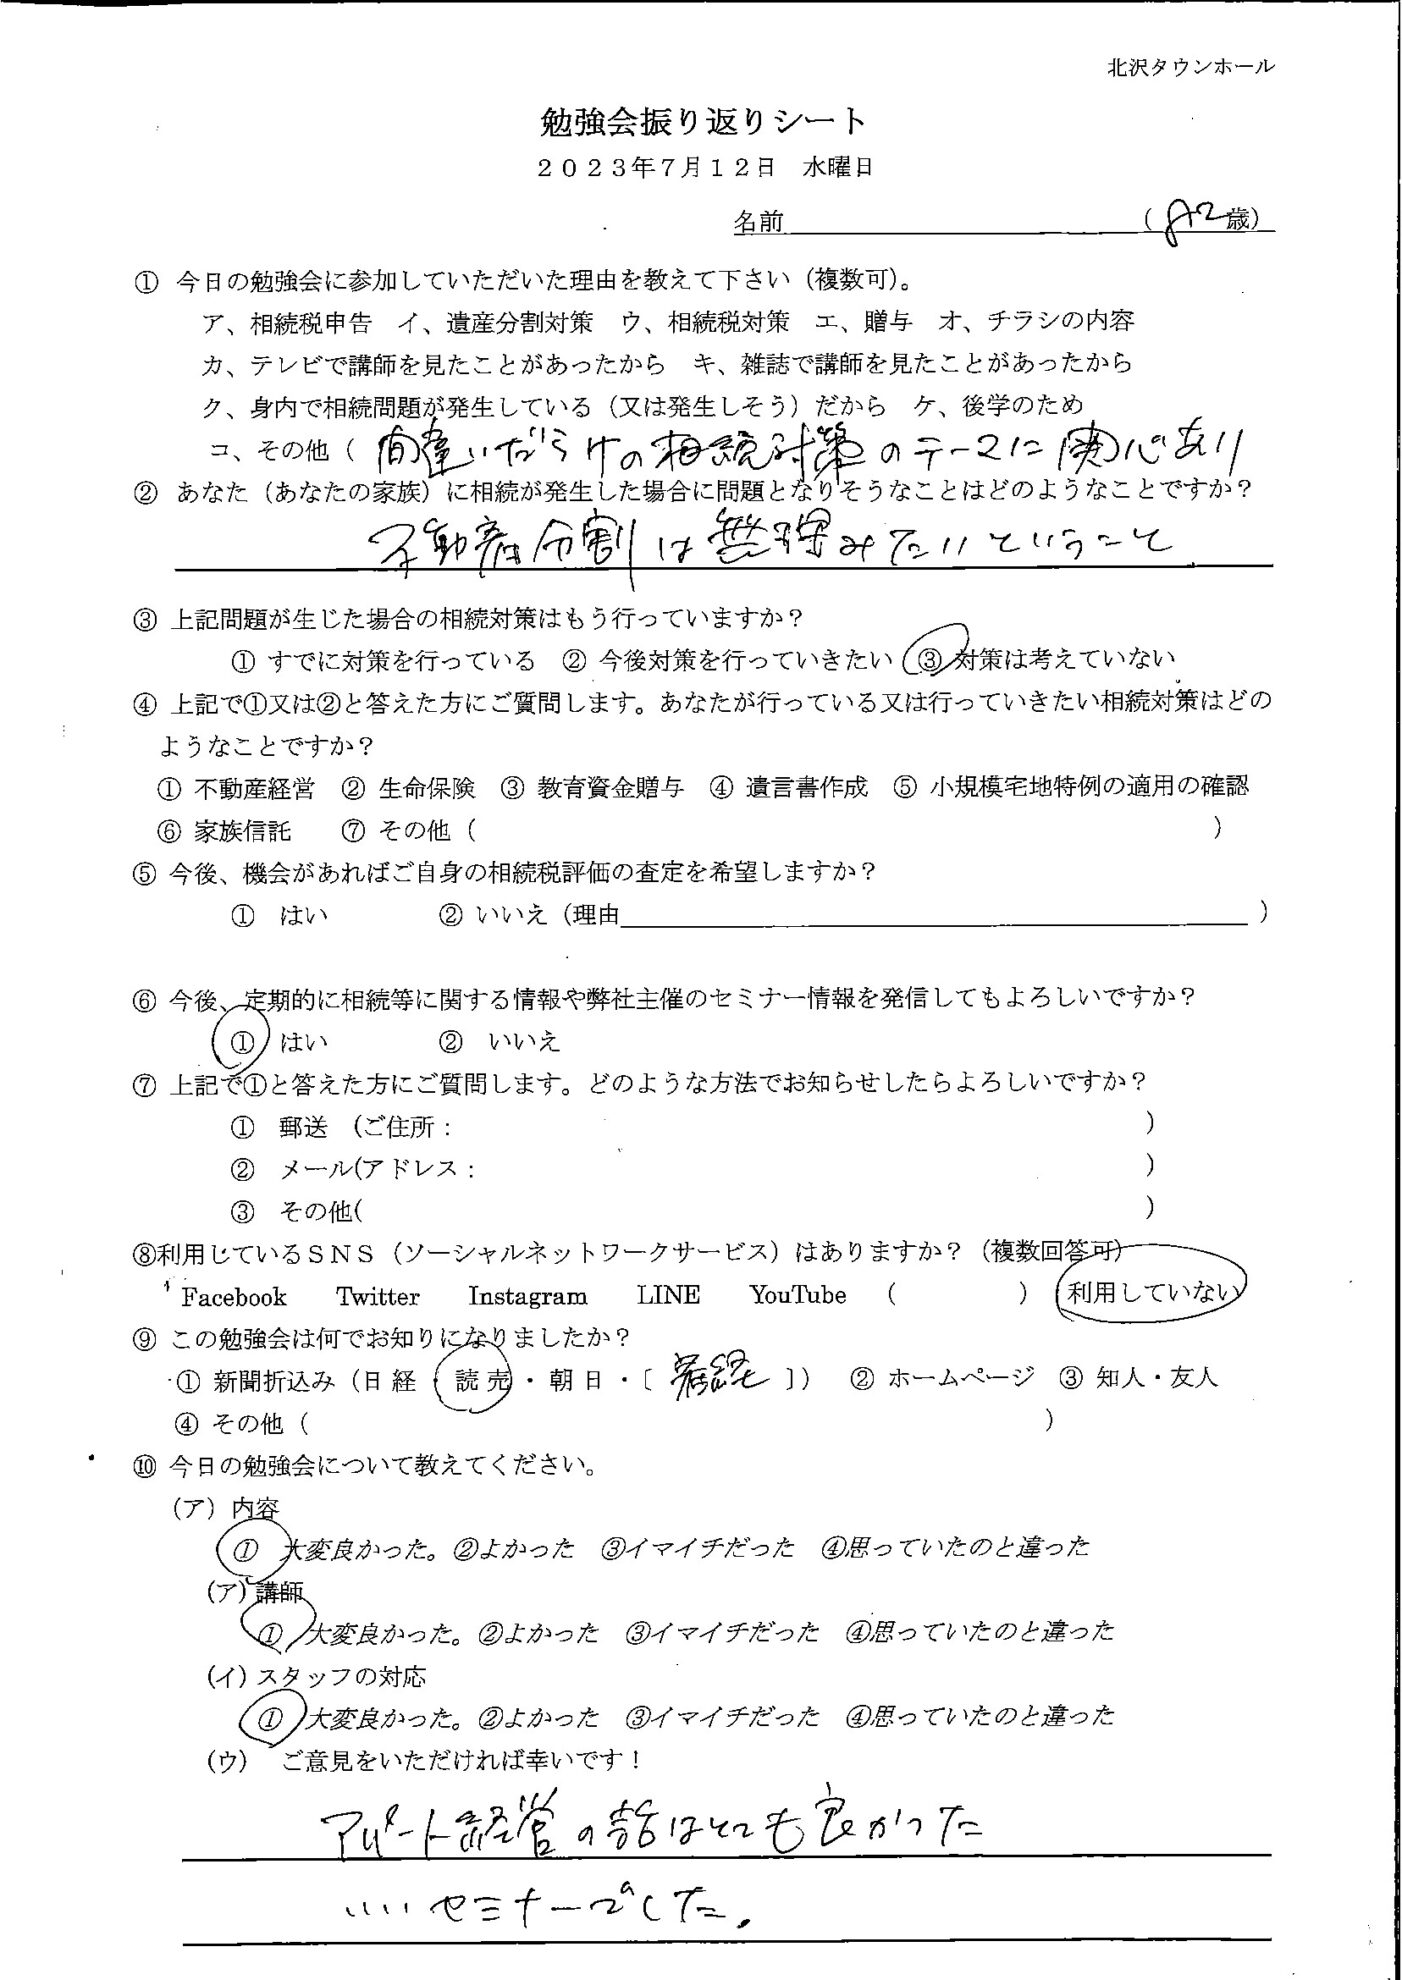 北沢タウンホール
勉強会振り返りシート
２０２３年７月１２日　水曜日
名前　（82歳）
① 今日の勉強会に参加していただいた理由を教えて下さい（複数可）。
ア、相続税申告　イ、遺産分割対策　ウ、相続税対策　エ、贈与　オ、チラシの内容
カ、テレビで講師を見たことがあったから　キ、雑誌で講師を見たことがあったから
ク、身内で相続問題が発生している（又は発生しそう）だから　ケ、後学のため
コ、その他（ 間違いだらけの相続対策のテーマに関心あり
② あなた（あなたの家族）に相続が発生した場合に問題となりそうなことはどのようなことですか？
不動産分割は無理みたいということ
③ 上記問題が生じた場合の相続対策はもう行っていますか？
① すでに対策を行っている　② 今後対策を行っていきたい　③ 対策は考えていない
④ 上記で①又は②と答えた方にご質問します。あなたが行っている又は行っていきたい相続対策はどの
ようなことですか？
① 不動産経営　② 生命保険　③ 教育資金贈与　④ 遺言書作成　⑤ 小規模宅地特例の適用の確認
⑥ 家族信託　　⑦ その他（　　　）
⑤ 今後、機会があればご自身の相続税評価の査定を希望しますか？
①　はい　　　② いいえ（理由　　　）
⑥ 今後、定期的に相続等に関する情報や弊社主催のセミナー情報を発信してもよろしいですか？
①　はい　　　②　いいえ
⑦ 上記で①と答えた方にご質問します。どのような方法でお知らせしたらよろしいですか？
①　郵送　（ご住所：　　　）
②　メール(アドレス：　　　)
③　その他(　　　)
⑧利用しているＳＮＳ（ソーシャルネットワークサービス）はありますか？（複数回答可）
Facebook　Twitter　Instagram　LINE　YouTube　（　　　）　利用していない
⑨ この勉強会は何でお知りになりましたか？
① 新聞折込み（日経・読売・朝日・［ 産経 ］）　② ホームページ　③ 知人・友人
④ その他（　　　）
⑩ 今日の勉強会について教えてください。
（ア）内容
①　大変良かった。②よかった　③イマイチだった　④思っていたのと違った
（ア）講師
①　大変良かった。②よかった　③イマイチだった　④思っていたのと違った
（イ）スタッフの対応
①　大変良かった。②よかった　③イマイチだった　④思っていたのと違った
（ウ）　ご意見をいただければ幸いです！
アパート経営の話はとても良かった
いいセミナーでした。